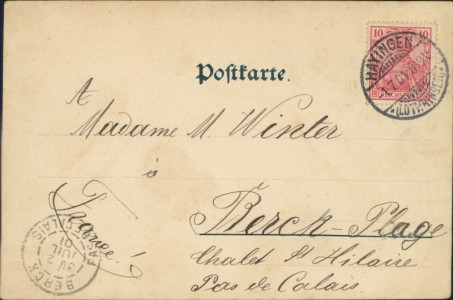 10 10
HAYINGEN
(LOTHRINGEN)
Postkarte.
A
Madame M. Winter
à
Berck-Plage
Chalet St Hilaire
Pas de Calais.
France
BERCK
PAS DE CALAIS
JUIL
01